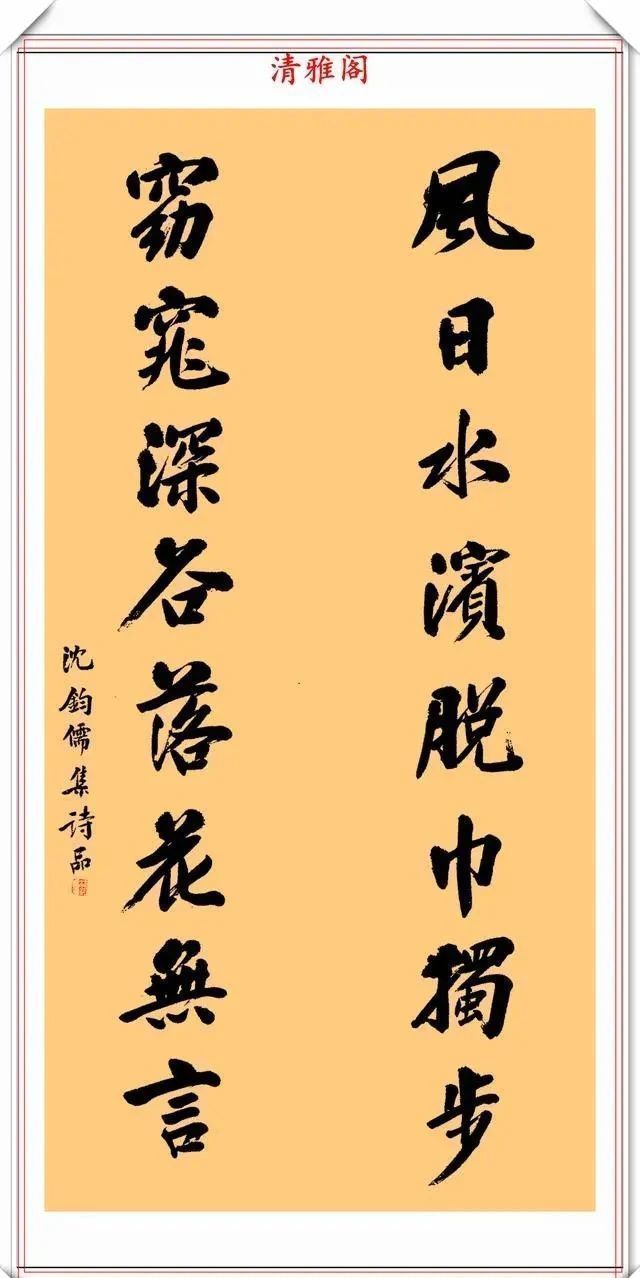 清雅阁
風日水濱脱巾獨步
窈窕深谷落花無言
沈鈞儒集诗品